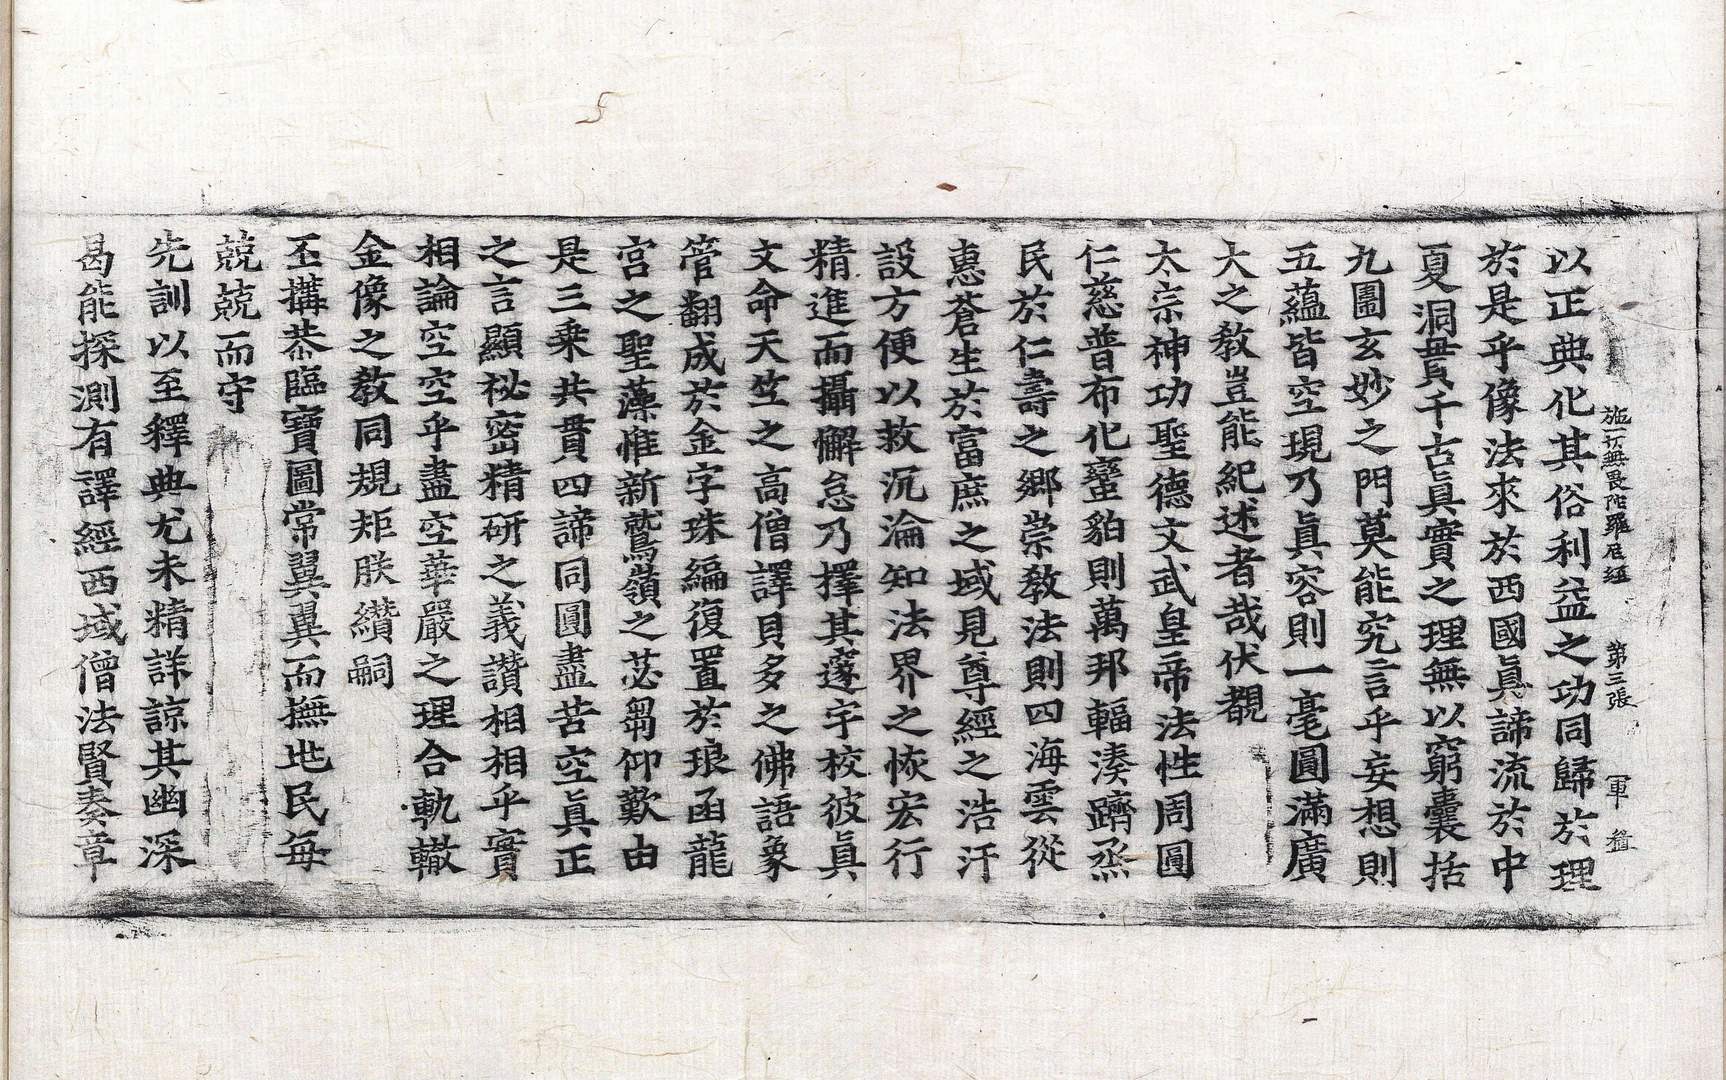 施一切無畏陁羅尼經 第三張 軍
以正典化其俗利益之功同歸於理
於是乎像法來於西國眞諦流於中
夏洞貫千古眞實之理無以窮囊括
九圍玄妙之門莫能究言乎妄想則
五蘊皆空現乃眞容則一毫圓滿廣
大之敎豈能紀述者哉伏覩
太宗神功聖德文武皇帝法性周圓
仁慈普布化蠻貊則萬邦輻湊躋烝
民於仁壽之鄉崇敎法則四海雲從
惠蒼生於富庶之域見尊經之浩汗
設方便以救沉淪知法界之恢宏行
精進而攝懈怠乃擇其邃宇校彼眞
文命天竺之高僧譯貝多之佛語象
管翻成於金字珠編復置於琅函龍
宮之聖藻惟新鷲嶺之苾芻仰歎由
是三乘共貫四諦同圓盡苦空眞正
之言顯祕密精硏之義讚相相乎實
相論空空乎盡空華嚴之理合軌轍
金像之敎同規矩朕纘嗣
丕搆恭臨寶圖常翼翼而撫地民每
兢兢而守
先訓以至釋典尤未精詳諒其幽深
曷能探測有譯經西域僧法賢奏章